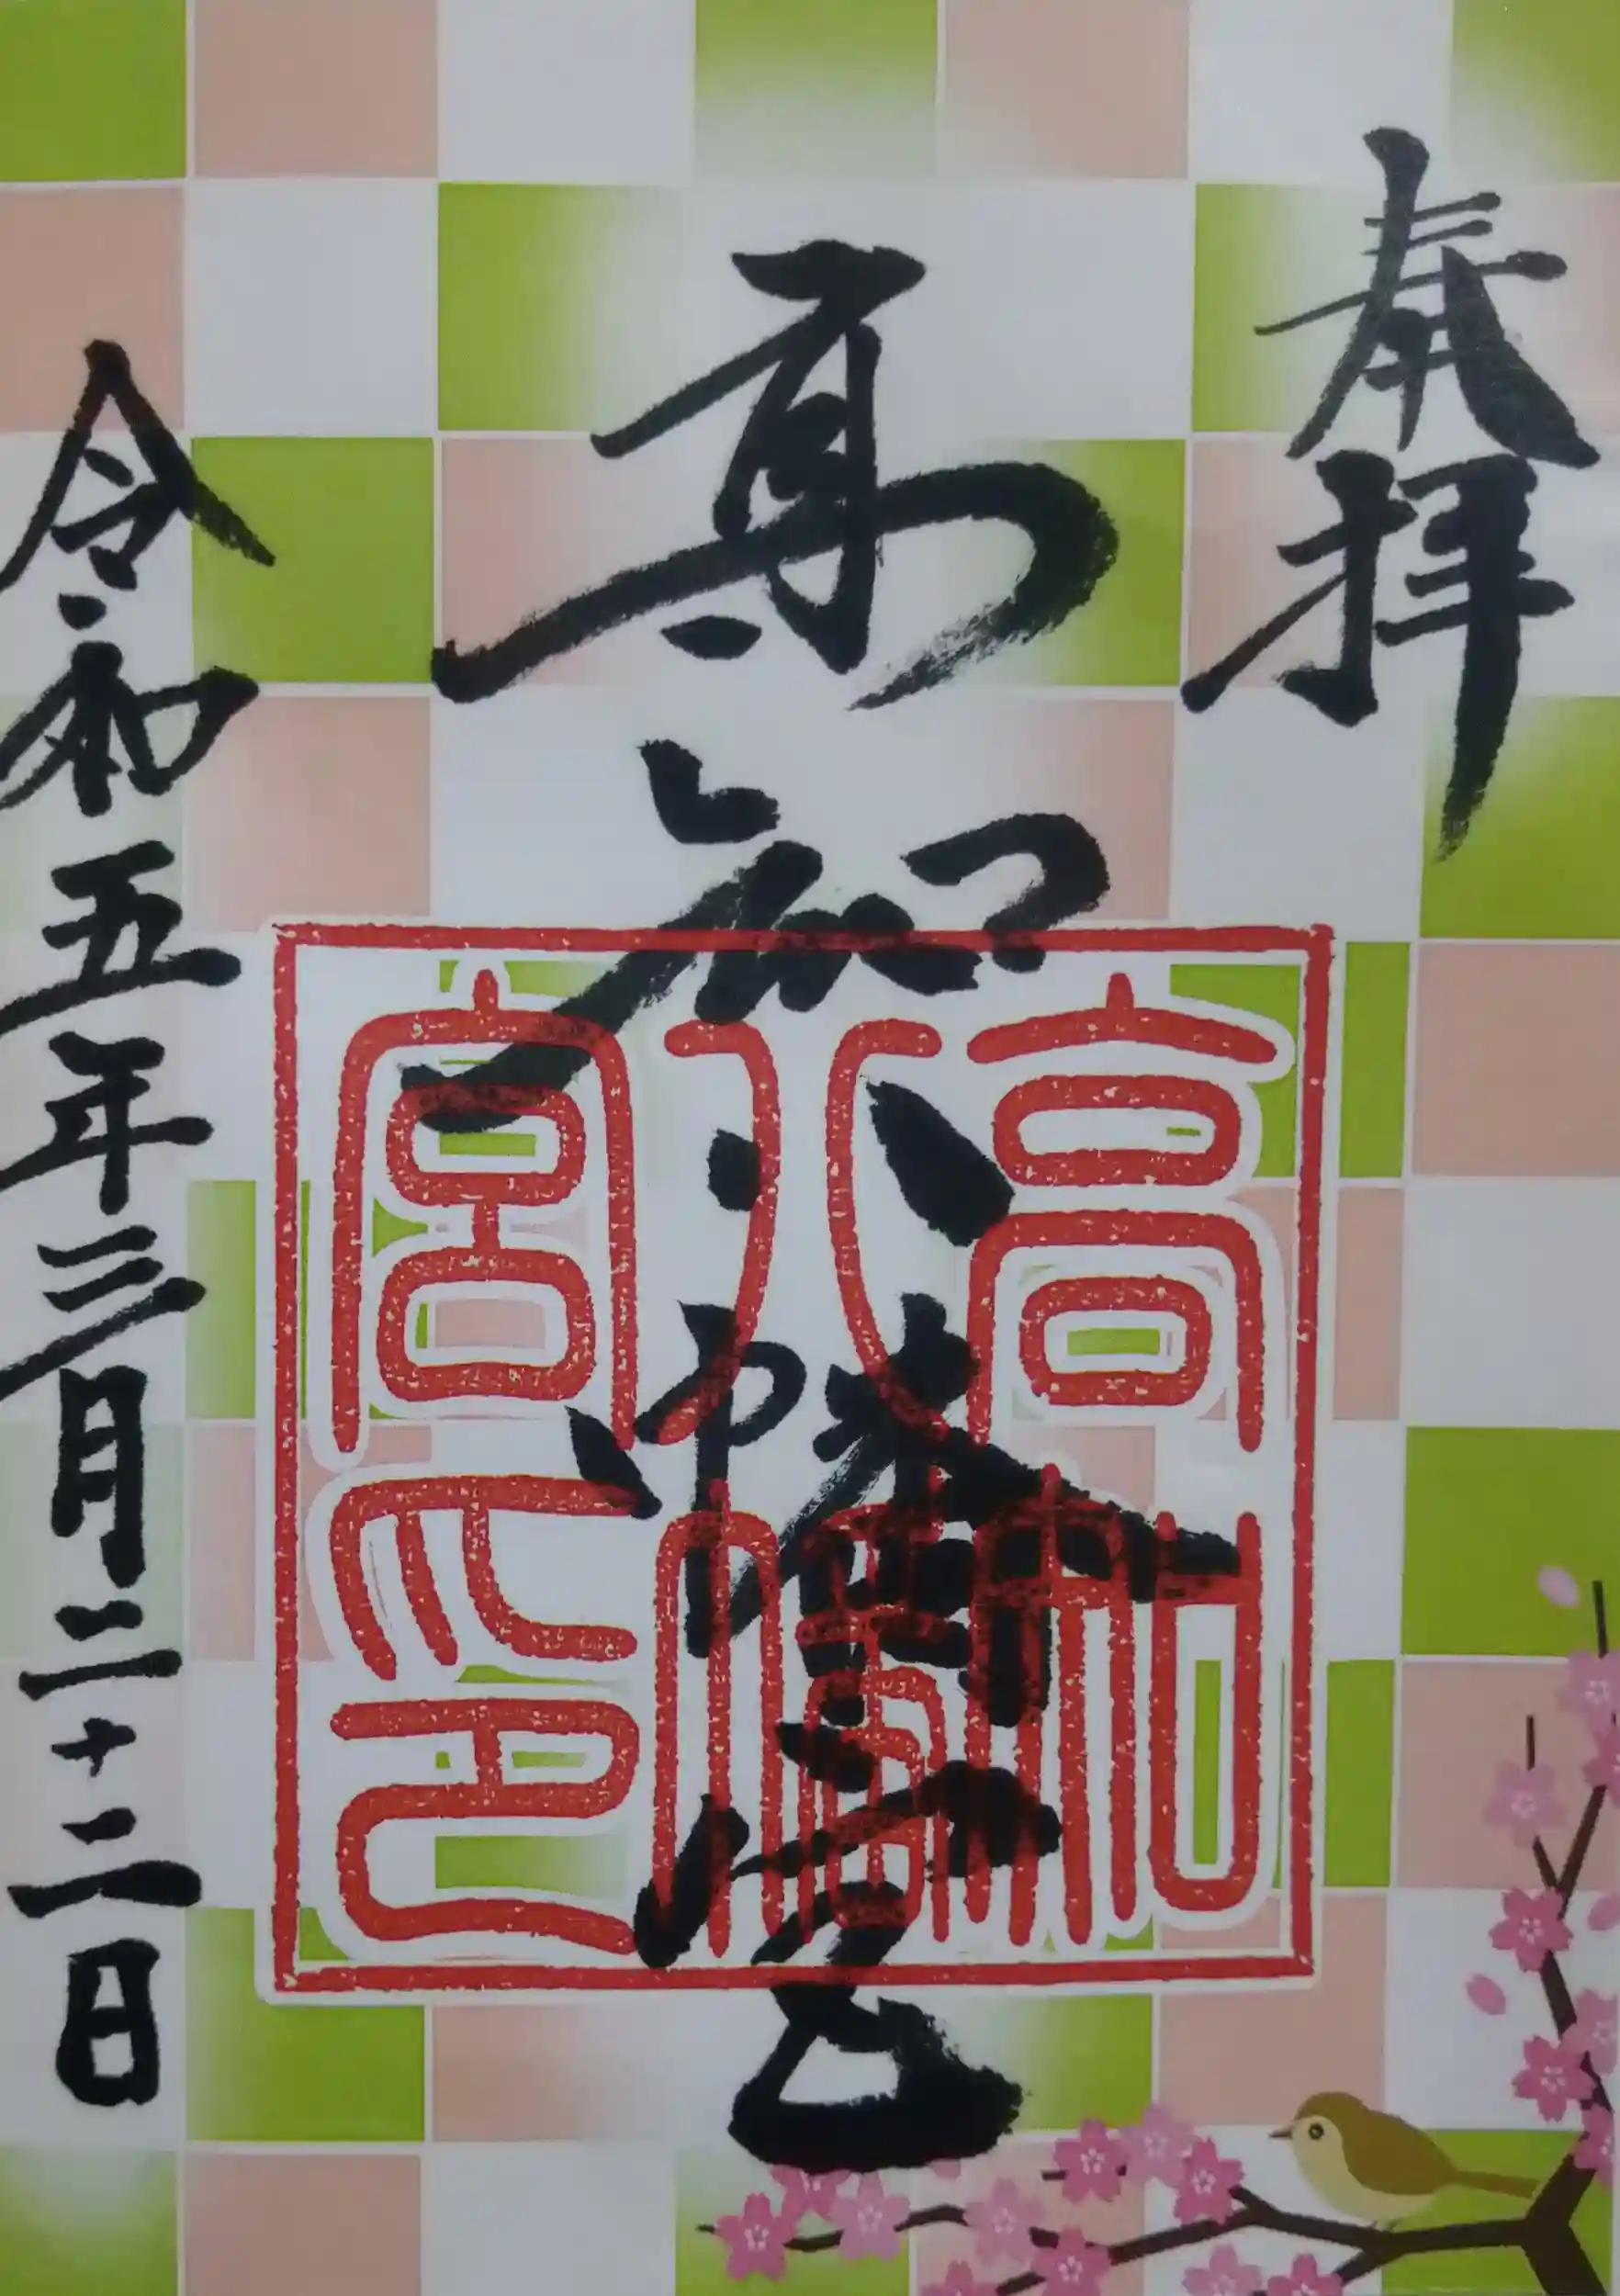 奉拝
高知八幡宮
高知八幡宮印
令和五年三月二十二日